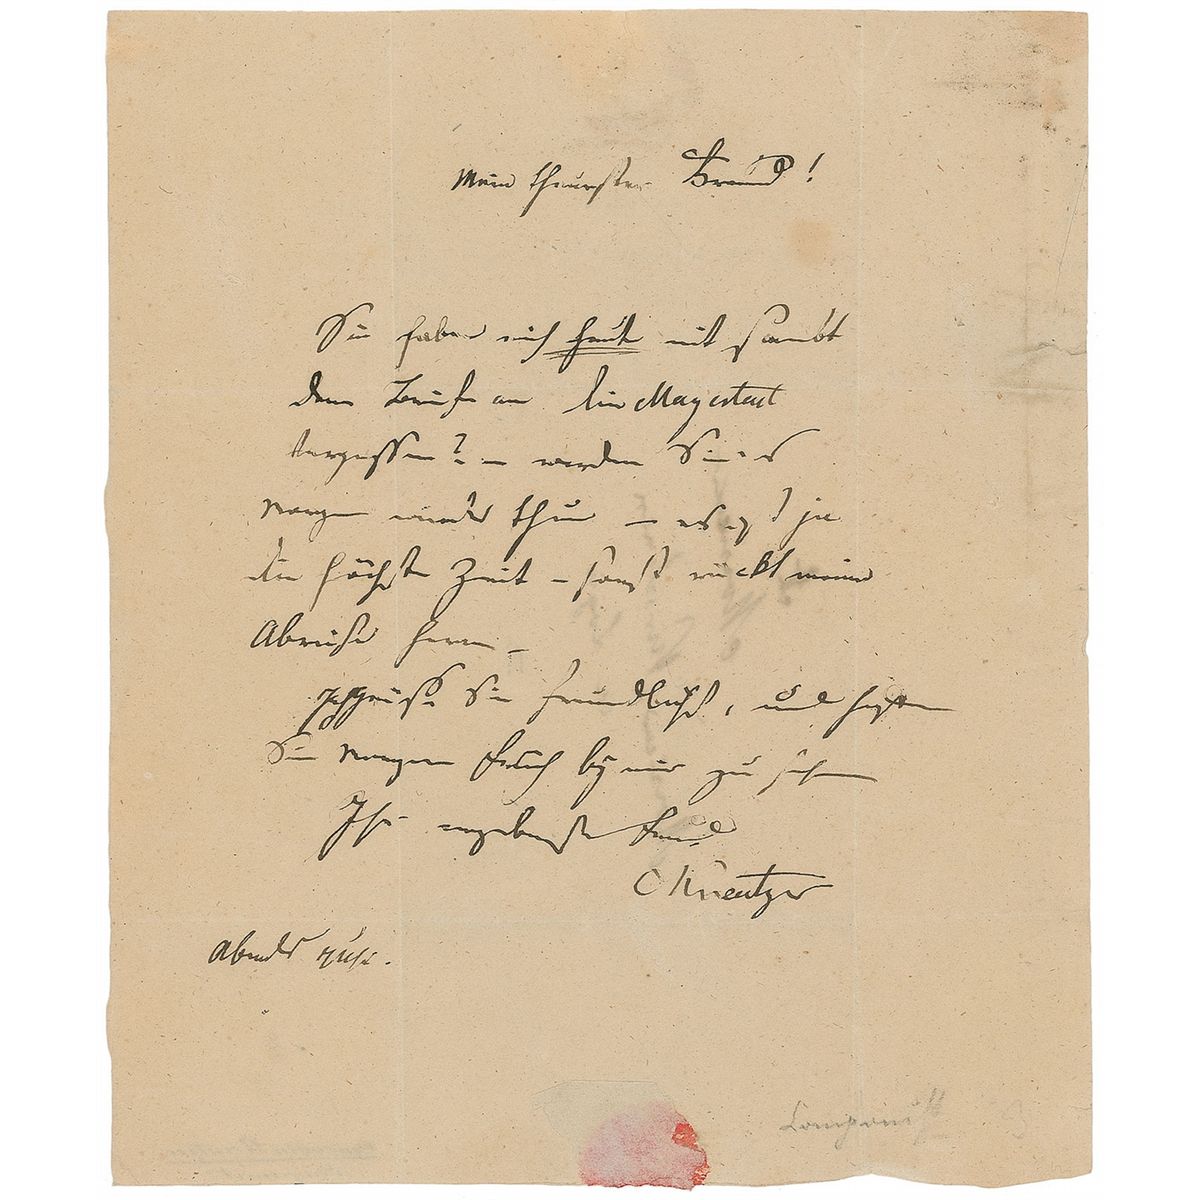 Mein theurster Freund!
Sie haben mich heut mit sambt
dem Briefe an die Magestett
vergessen? – werden Sie es
Morgen wieder thun – es ist ja
die höchste Zeit – sonst rückt meine
Abreise heran –
Ich grüße Sie freundlichst, und hoffe
Sie Morgen fruh bÿ mir zu sehen
Ihr ergebenster Freund
CKreutzer
Abends Uhr.
Componist